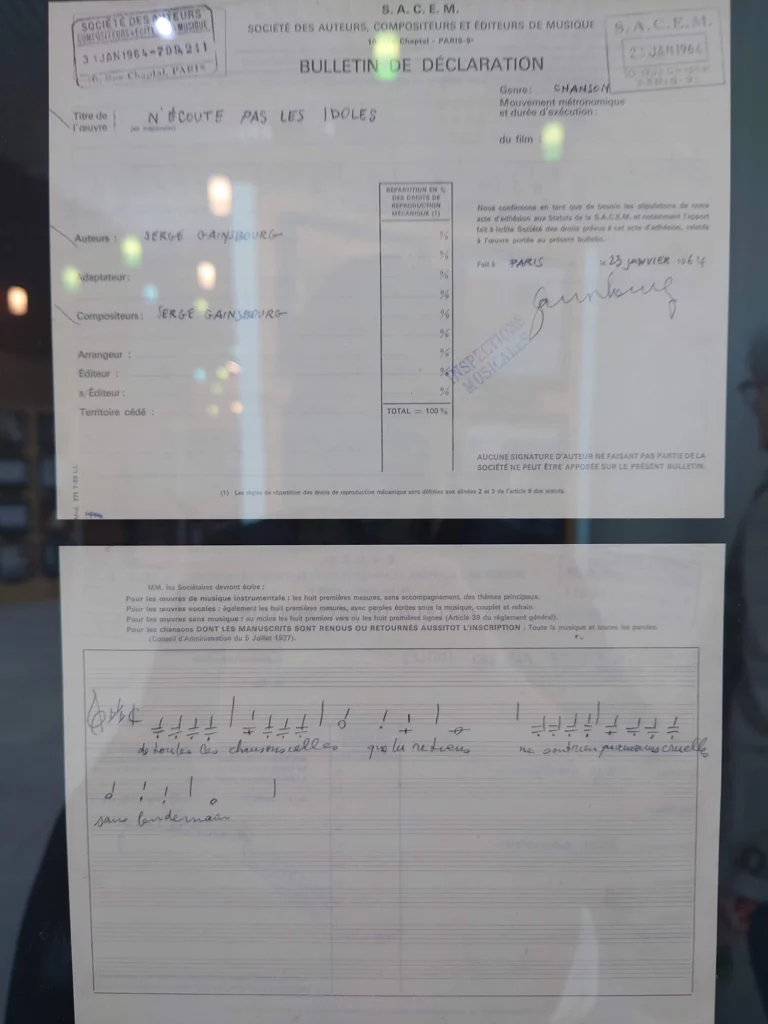 SOCIÉTÉ DES AUTEURS
COMPOSITEURS & ÉDIT. DE MUSIQUE
31 JAN 1964-709,211
Rue Chaptal, PARIS
S.A.C.E.M.
SOCIÉTÉ DES AUTEURS, COMPOSITEURS ET ÉDITEURS DE MUSIQUE
Chaptal - PARIS-9e
BULLETIN DE DÉCLARATION
S.A.C.E.M.
23 JAN 1964
Rue Chaptal
PARIS-9e
Genre: CHANSON
Mouvement métronomique
et durée d'exécution:
du film:
Titre de l'œuvre N'ÉCOUTE PAS LES IDOLES
RÉPARTITION EN %
DES DROITS DE
REPRODUCTION
MÉCANIQUE (1)
Nous confirmons en tant que de besoin les stipulations de notre
acte d'adhésion aux Statuts de la S.A.C.E.M. et notamment l'apport
fait à ladite Société des droits prévus à cet acte d'adhésion, relatifs
à l'œuvre portée au présent bulletin.
Auteurs: SERGE GAINSBOURG %
%
Fait à PARIS le 23 JANVIER 1964
Adaptateur: %
%
Gainsbourg
Compositeurs: SERGE GAINSBOURG %
%
Arrangeur: %
Éditeur: %
s/Éditeur: %
INSPECTIONS
MUSICALES
Territoire cédé:
TOTAL = 100 %
AUCUNE SIGNATURE D'AUTEUR NE FAISANT PAS PARTIE DE LA
SOCIÉTÉ NE PEUT ÊTRE APPOSÉE SUR LE PRÉSENT BULLETIN.
(1) Les règles de répartition des droits de reproduction mécanique sont définies aux alinéas 2 et 3 de l'article 9 des statuts.
MM. les Sociétaires devront écrire:
Pour les œuvres de musique instrumentale: les huit premières mesures, sans accompagnement, des thèmes principaux.
Pour les œuvres vocales: également les huit premières mesures, avec paroles écrites sous la musique, couplet et refrain.
Pour les œuvres sans musique: au moins les huit premiers vers ou les huit premières lignes (Article 39 du règlement général).
Pour les chansons DONT LES MANUSCRITS SONT RENDUS OU RETOURNÉS AUSSITOT L'INSCRIPTION: Toute la musique et toutes les paroles.
(Conseil d'Administration du 5 Juillet 1927).
de toutes ces chansons celles que tu retiens ne sont rien cruelles
sans lendemain